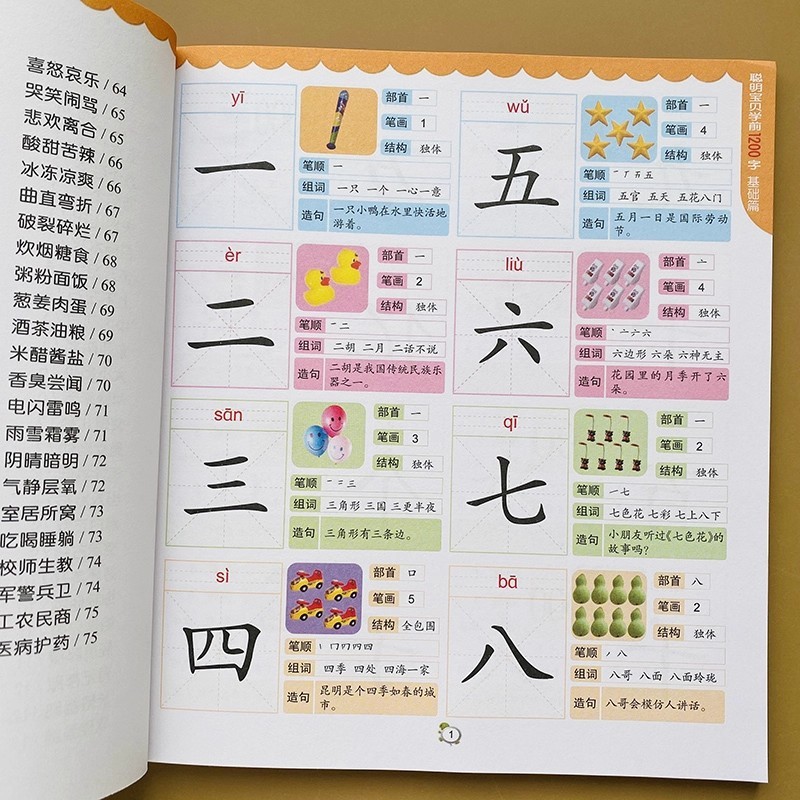 喜怒哀乐 / 64
哭笑闹骂 / 65
悲欢离合 / 65
酸甜苦辣 / 66
冰冻凉爽 / 66
曲直弯折 / 67
破裂碎烂 / 67
炊烟糖食 / 68
粥粉面饭 / 68
葱姜肉蛋 / 69
酒茶油粮 / 69
米醋酱盐 / 70
香臭尝闻 / 70
电闪雷鸣 / 71
雨雪霜雾 / 71
阴晴暗明 / 72
气静层氧 / 72
室居所窝 / 73
吃喝睡躺 / 73
校师生教 / 74
军警兵卫 / 74
工农民商 / 75
医病护药 / 75
yī
一
部首 一
笔画 1
结构 独体
笔顺 一
组词 一只 一个 一心一意
造句 一只小鸭在水里快活地
游着。
èr
二
部首 一
笔画 2
结构 独体
笔顺 一二
组词 二胡 二月 二话不说
造句 二胡是我国传统民族乐
器之一。
sān
三
部首 一
笔画 3
结构 独体
笔顺 一二三
组词 三角形 三国 三更半夜
造句 三角形有三条边。
sì
四
部首 口
笔画 5
结构 全包围
笔顺 丨冂冂四四
组词 四季 四处 四海一家
造句 昆明是个四季如春的城
市。
wǔ
五
部首 一
笔画 4
结构 独体
笔顺 一丆五五
组词 五官 五天 五花八门
造句 五月一日是国际劳动
节。
liù
六
部首 亠
笔画 4
结构 独体
笔顺 丶亠六六
组词 六边形 六朵 六神无主
造句 花园里的月季开了六
朵。
qī
七
部首 一
笔画 2
结构 独体
笔顺 一七
组词 七色花 七彩 七上八下
造句 小朋友听过《七色花》的
故事吗?
bā
八
部首 八
笔画 2
结构 独体
笔顺 丿八
组词 八哥 八面 八面玲珑
造句 八哥会模仿人讲话。
聪明宝贝学前1200字 基础篇
1